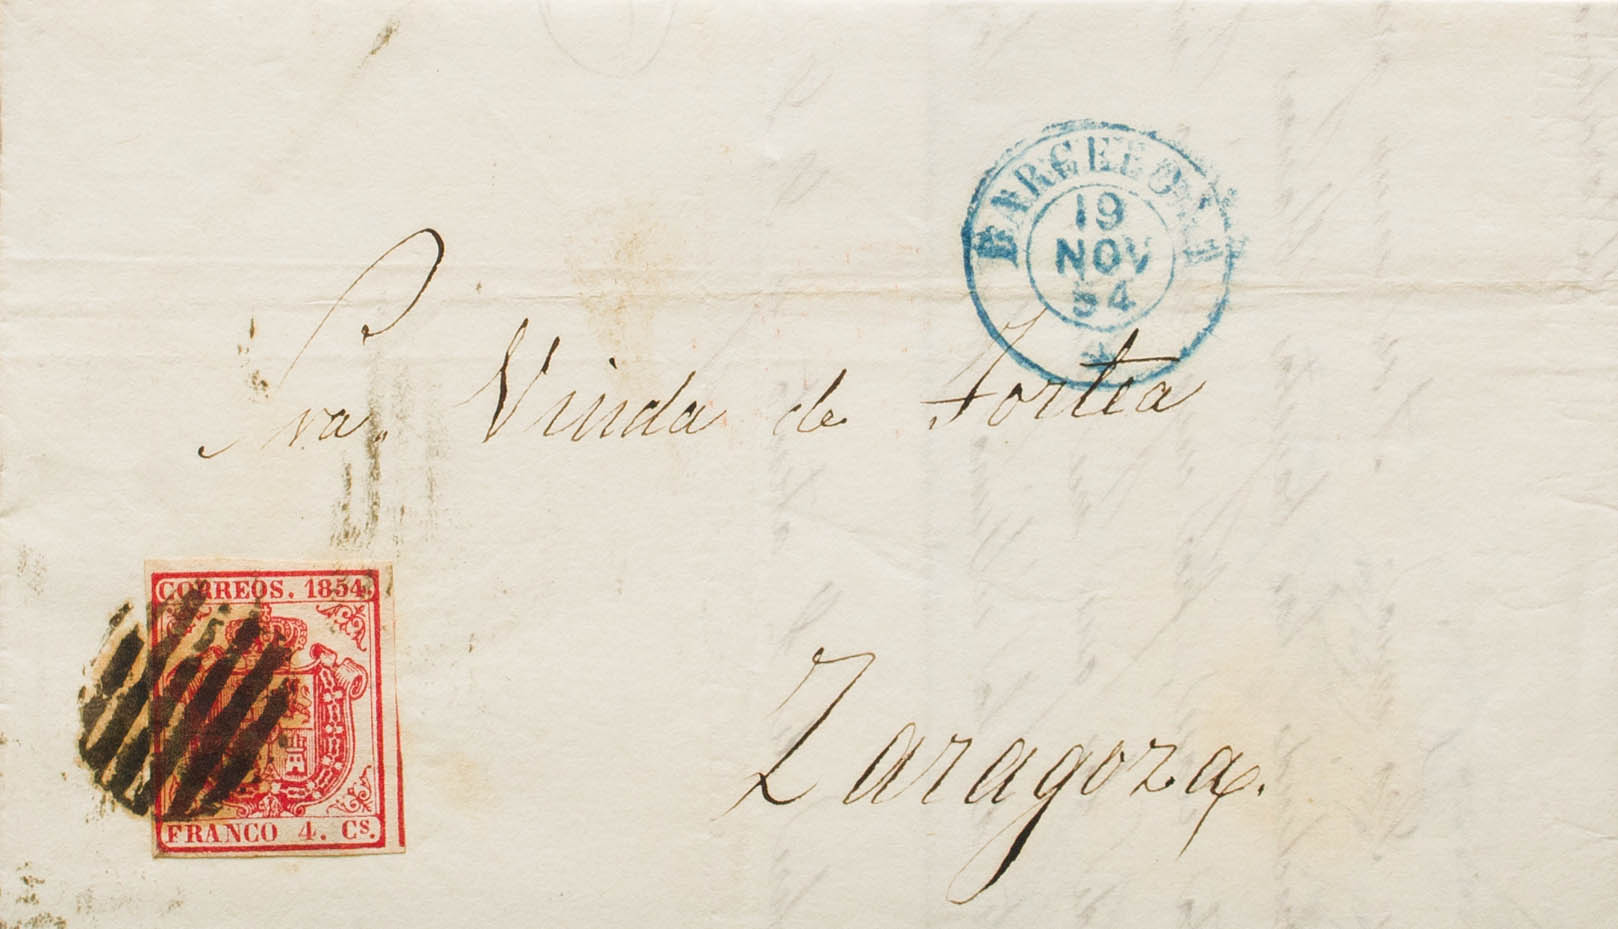 BARCELONA
19
NOV
54
Sra. Viuda de Fortea
Zaragoza.
CORREOS. 1854.
FRANCO 4. Cs.